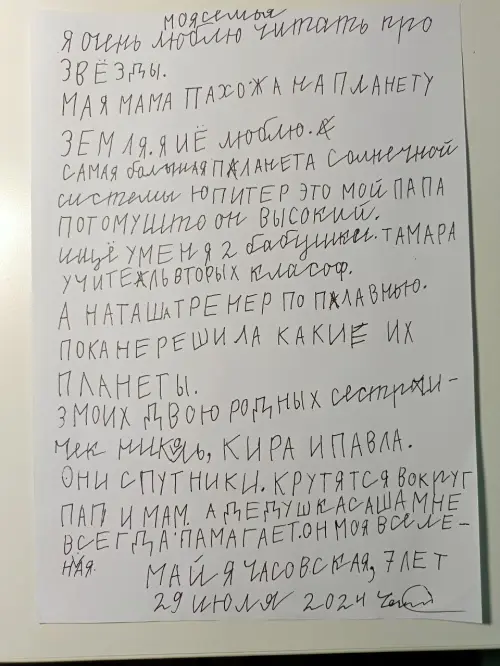 моя семья
Я очень люблю читать про
ЗВЁЗДЫ.
МАЯ МАМА ПАХОЖА НА ПЛАНЕТУ
ЗЕМЛЯ. Я ИЁ люблю.
САМАЯ балшная ПЛАНЕТА Солнечной
системы ЮПИТЕР ЭТО МОЙ ПАПА
ПОТОМУШТО ОН ВЫСОКИЙ.
ищё У МЕНЯ 2 бабушки. ТАМАРА
УЧИТЕЛЬ ВТОРЫХ класоф.
А НАТАША ТРЕНЕР ПО ПЛАВНЬЮ.
ПОКА НЕ РЕШИЛА КАКИЕ ИХ
ПЛАНЕТЫ.
3 МОИХ ДВОЮРОДНЫХ сестри-
чек КИРА И ПАВЛА.
ОНИ СПУТНИКИ. КРУТЯТСЯ ВОКРУГ
ПАП И МАМ. А ДЕДУШКА САША МНЕ
ВСЕГДА ПАМАГАЕТ. ОН МОЯ ВСЕЛЕ-
НАЯ.
МАЙЯ ЧАСОВСКАЯ, 7 ЛЕТ
29 июля 2024